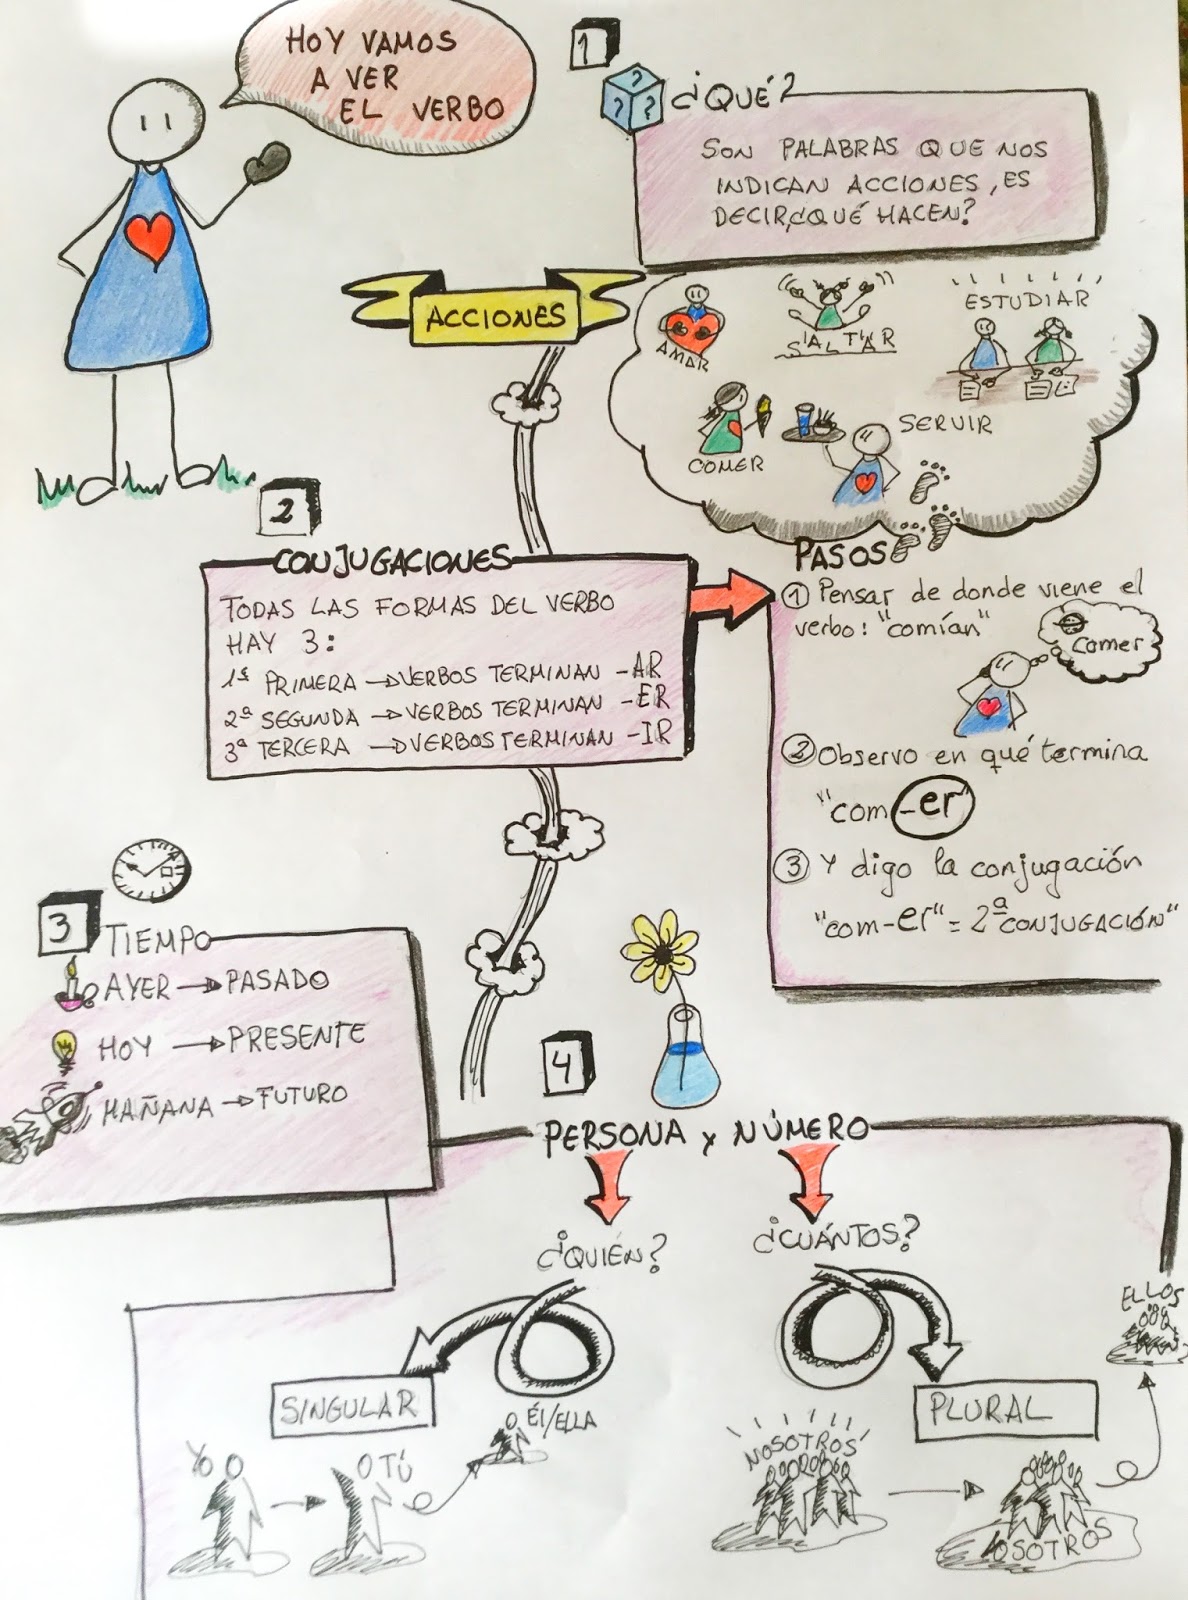 HOY VAMOS
A VER
EL VERBO
1
? ? ?
¿QUÉ?
SON PALABRAS QUE NOS
INDICAN ACCIONES, ES
DECIR, ¿QUÉ HACEN?
ACCIONES
AMAR
SALTAR
ESTUDIAR
COMER
SERVIR
2
CONJUGACIONES
TODAS LAS FORMAS DEL VERBO
HAY 3:
1ª PRIMERA → VERBOS TERMINAN -AR
2ª SEGUNDA → VERBOS TERMINAN -ER
3ª TERCERA → VERBOS TERMINAN -IR
PASOS
① Pensar de donde viene el
verbo: "comían"
comer
② Observo en qué termina
"com-er"
③ Y digo la conjugación
"com-er" = 2ª CONJUGACIÓN"
3
TIEMPO
AYER → PASADO
HOY → PRESENTE
MAÑANA → FUTURO
4
PERSONA Y NÚMERO
¿QUIÉN?
¿CUÁNTOS?
SINGULAR
YO
TÚ
ÉL/ELLA
PLURAL
NOSOTROS
VOSOTROS
ELLOS